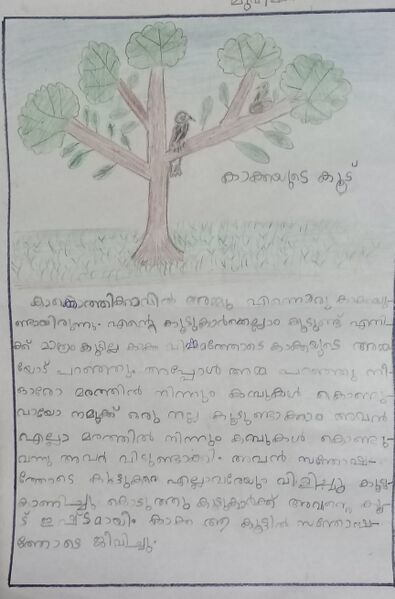 കാക്കയുടെ കൂട്
കാക്കത്തിക്കാവിൽ അമ്മു എന്നൊരു കാക്കയു-
ണ്ടായിരുന്നു. എന്റെ കൂട്ടുകാർക്കെല്ലാം കൂടുണ്ട് എനി-
ക്ക് മാത്രം കൂടില്ല കാക്ക വിഷമത്തോടെ കാക്കയുടെ അമ്മ
യോട് പറഞ്ഞു. അപ്പോൾ അമ്മ പറഞ്ഞു നീ
ഓരോ മരത്തിൽ നിന്നും കമ്പുകൾ കൊണ്ടു-
വായോ നമുക്ക് ഒരു നല്ല കൂടുണ്ടാക്കാം അവൻ
എല്ലാ മരത്തിൽ നിന്നും കമ്പുകൾ കൊണ്ടു-
വന്നു അവർ വീടുണ്ടാക്കി. അവൻ സന്തോഷ-
ത്തോടെ കൂട്ടുകാരെ എല്ലാവരേയും വിളിച്ചു കൂടു-
കാണിച്ചു കൊടുത്തു കൂട്ടുകാർക്ക് അവന്റെ കൂ-
ട് ഇഷ്ടമായി. കാക്ക ആ കൂട്ടിൽ സന്തോഷ-
ത്തോടെ ജീവിച്ചു.